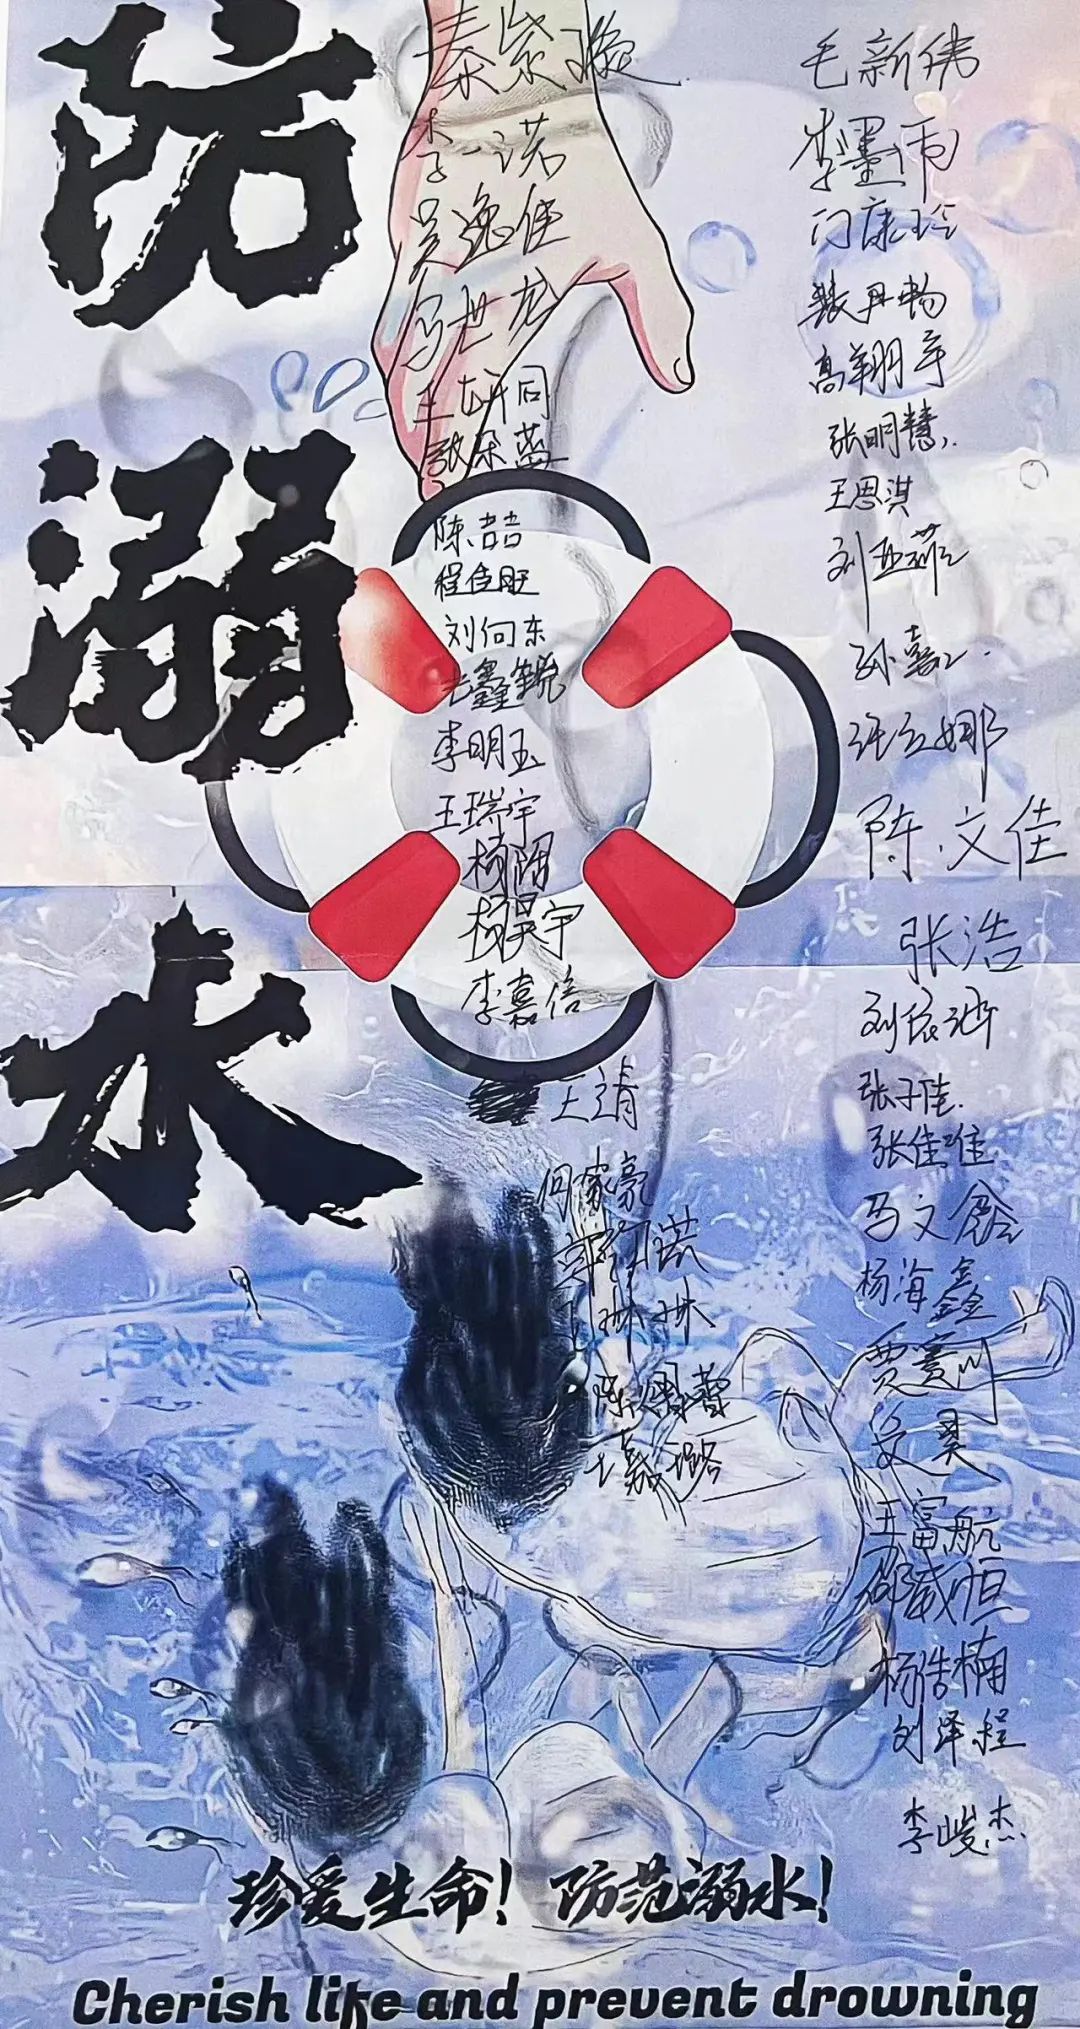 防溺水
秦紫璇
李一诺
吴逸佳
马世龙
王妍同
陈喆
程佳旺
刘向东
鑫锐
李明玉
王瑞宇
杨阳
杨昊宇
李嘉信
王靖
何家豪
琳琳
陈 蕾
王嘉璐
毛新伟
李墨雨
闫康玲
张丹畅
高翔宇
张明慧
王恩淇
刘亚菲
孙嘉
张 娜
陈文佳
张浩
刘依
张子佳
张佳唯
马文
杨海鑫
贾
昊
王富航
邵威恒
杨浩楠
刘泽程
李峻杰
珍爱生命！防范溺水！
Cherish life and prevent drowning